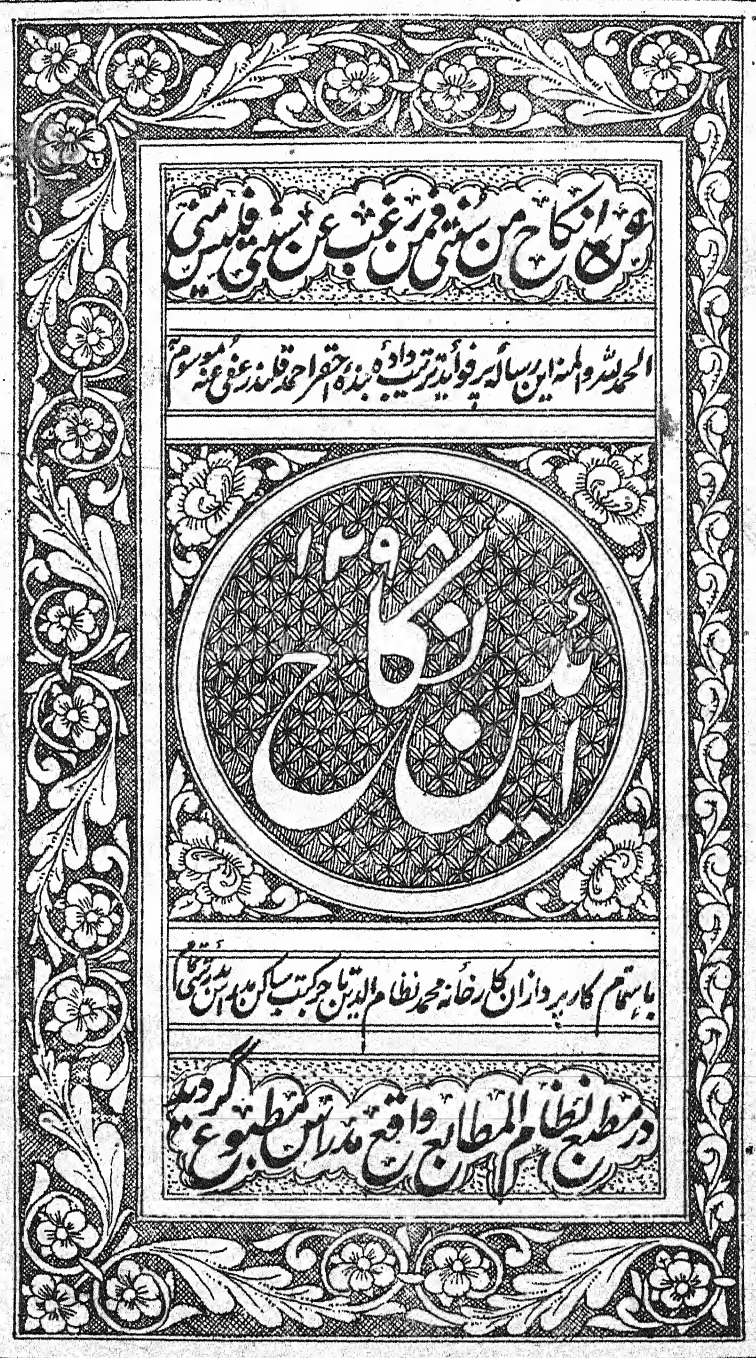 النکاح من سنتی فمن رغب عن سنتی فلیس منی
الحمد لله والمنه این رسالہ پر فوائد ترتیب دادۂ بندۂ احقر احمد قلندر عفی عنه موسوم
۱۲۹۸
آئین نکاح
باہتمام کارپردازان کارخانه محمد نظام الدین تاجر کتب ساکن مدراس
در مطبع نظام المطابع واقع مدراس مطبوع گردید